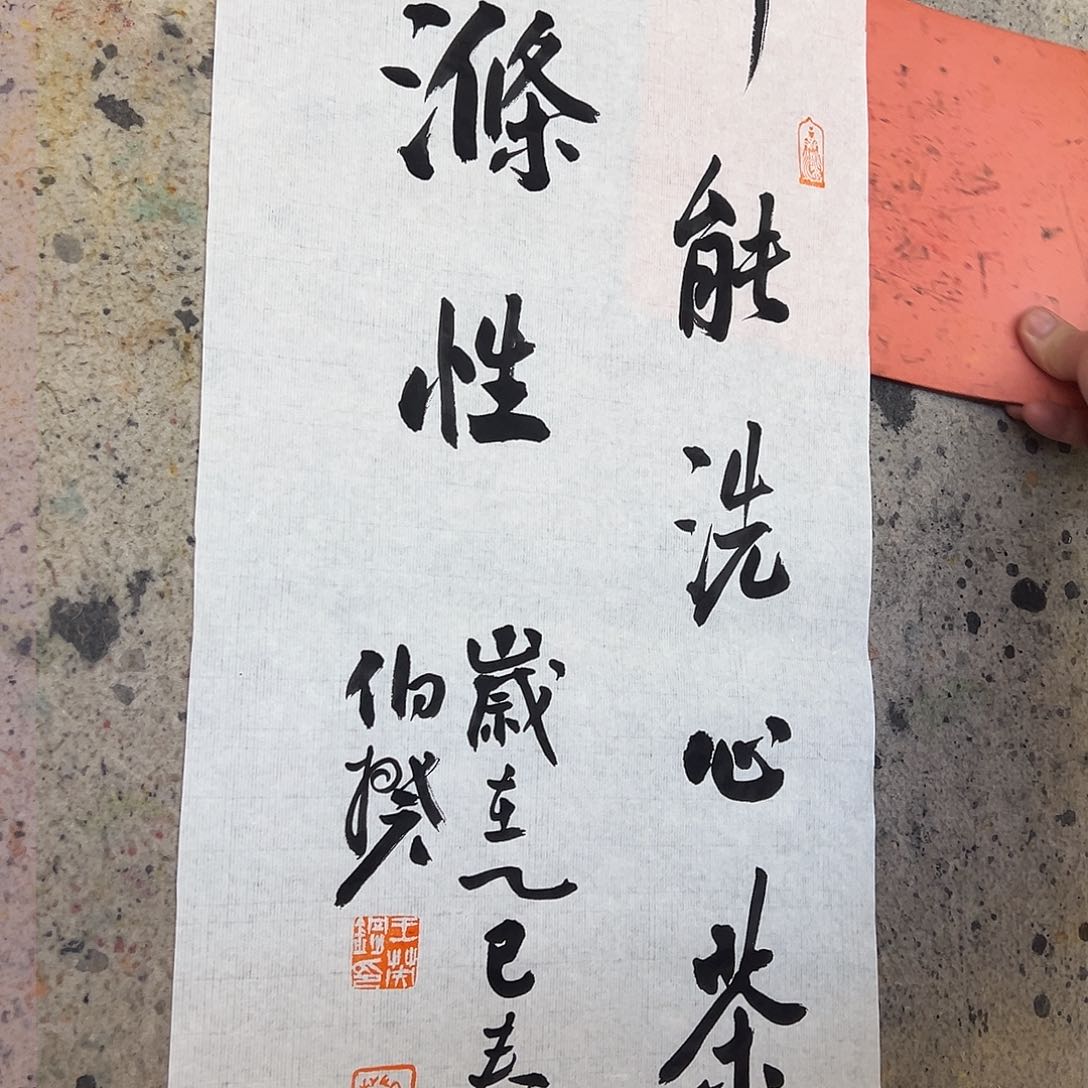 能洗心茶
滌性
歲在乙巳
伯揆